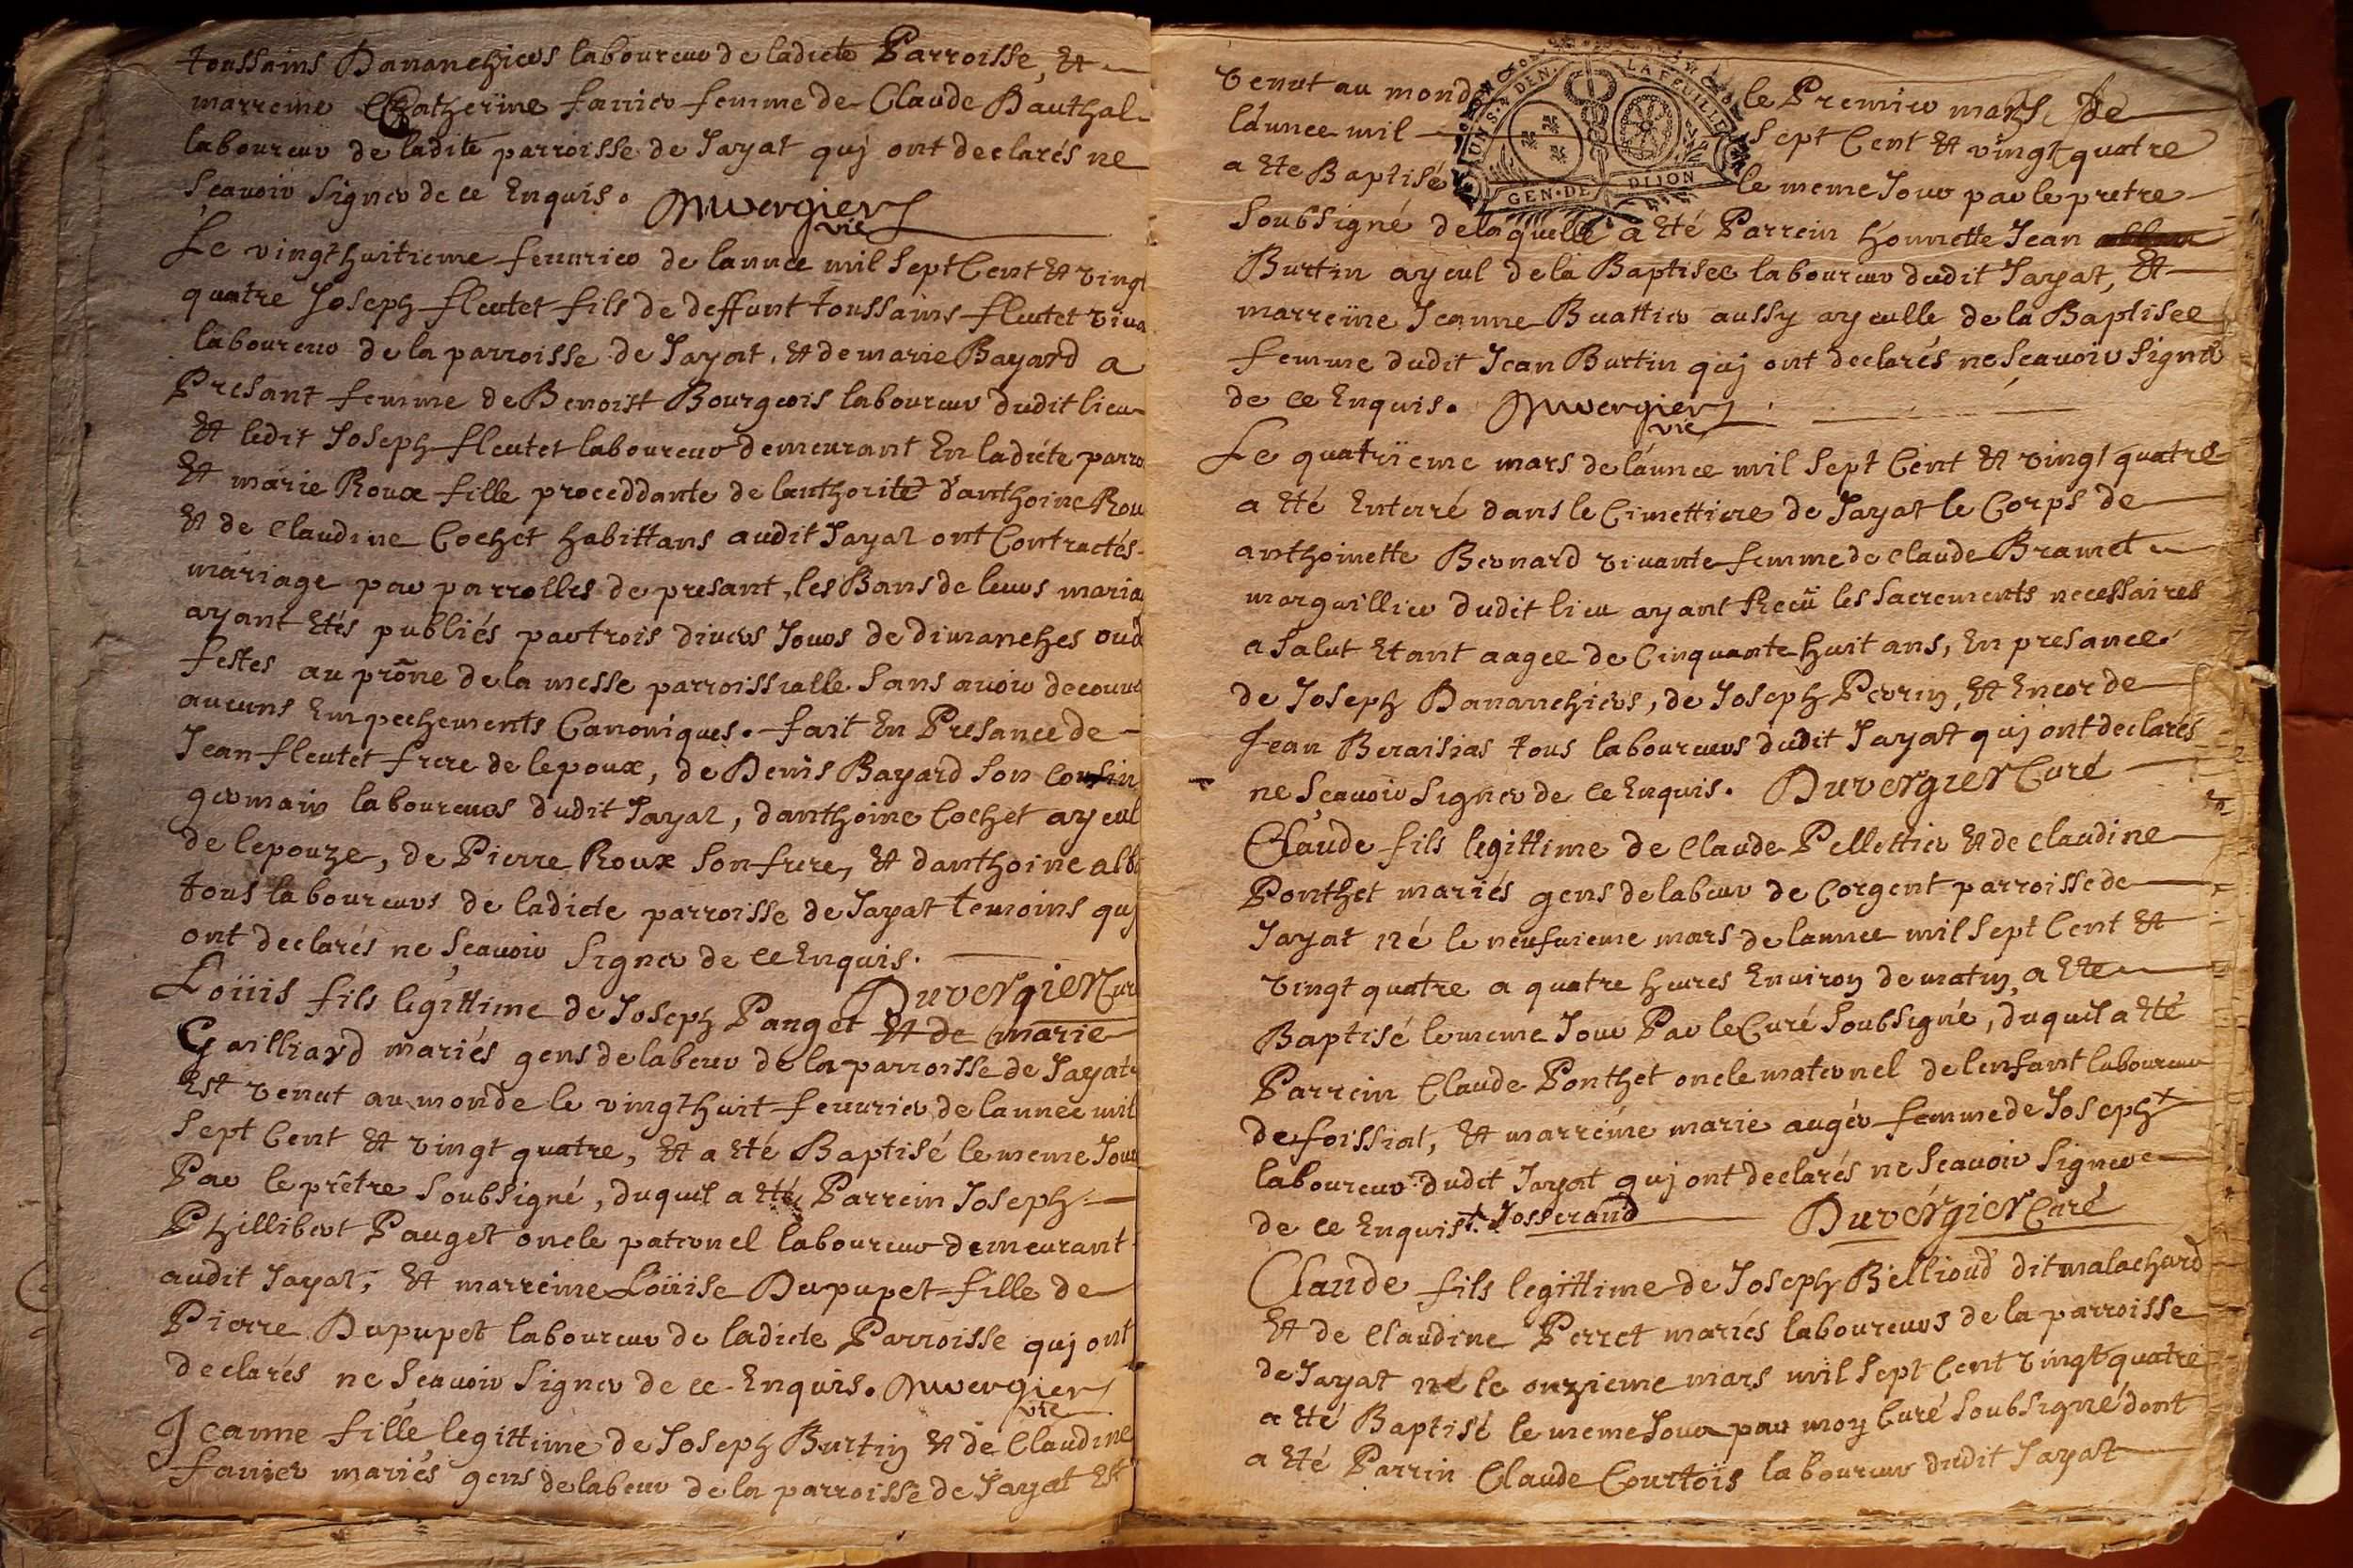 toussains Dananchiers laboureur de ladicte Parroisse, Et
marreine Catherine fanier femme de Claude Dauthal
laboureur de ladite parroisse de Jayat quj ont declarés ne
sçavoir signer de ce Enquis. Duvergier
vic
Le vingt huitieme feuurier de lannee mil sept Cent Et vingt
quatre Joseph fleutet fils de deffunt toussains fleutet viva
laboureur de la parroisse de Jayat, Et de marie Bayard a
Presant femme de Benoist Bourgeois laboureur dudit lieu
Et ledit Joseph fleutet laboureur demeurant En ladicte parro
Et marie Roux fille proceddante de lauthorité d'anthoine Rou
Et de Claudine Cochet habittans audit Jayat ont Contractés
mariage par parrolles de presant, les Bans de leurs maria
ayant Etés publiés par trois divers Jours de dimanches oud
festes au prône de la messe parroissialle sans avoir decouv
aucuns Empechements Canoniques. fait En Presance de
Jean fleutet frere de lepoux, de Denis Bayard son cousin
germain laboureurs dudit Jayat, danthoine Cochet ayeul
de lepouze, de Pierre Roux son frere, Et danthoine alb
tous laboureurs de ladicte parroisse de Jayat temoins quj
ont declarés ne sçavoir signer de ce Enquis.
Duvergier Cur
Loüis fils legittime de Joseph Pauget Et de marie
Gailliard mariés gens de labeur de la parroisse de Jayat
Est venut au monde le vingt huit feuurier de lannee mil
sept Cent Et vingt quatre, Et a Eté Baptisé le meme Jour
Par le prêtre soubsigné, duquel a Eté Parrein Joseph
Phillibert Pauget oncle paternel laboureur demeurant
audit Jayat, Et marreine Loüise Dupupet fille de
Pierre Dupupet laboureur de ladicte Parroisse quj ont
declarés ne sçavoir signer de ce Enquis. Duvergier
vic
Jeanne fille legittime de Joseph Burtin Et de Claudine
fanier mariés gens de labeur de la parroisse de Jayat Est
venut au monde le Premier mars de
lánnee mil sept Cent Et vingt quatre
a Ete Baptisé le meme Jour par le pretre
LA FEUILLE
GEN·DE DIJON
soubsigné delaquelle a Eté Parrein honnette Jean
Burtin ayeul de la Baptisee laboureur dudit Jayat, Et
marreïne Jeanne Buattier aussy ayeulle de la Baptisee
femme dudit Jean Burtin quj ont declarés ne sçavoir signé
de ce Enquis. Duvergier
vic
Le quatrïeme mars de lánnee mil sept Cent Et vingt quatre
a Eté Enterré dans le Cimettiere de Jayat le Corps de
anthoinette Bernard vivante femme de Claude Bramet
marguillier dudit lieu ayant Receü les sacrements necessaires
a salut Etant aagee de Cinquante huit ans, En presance
de Joseph Dananchiers, de Joseph Perrin, Et Encor de
Jean Beraisias tous laboureurs dudit Jayat quj ont declarés
ne sçavoir signer de ce Enquis. Duvergier Curé
Claude fils legittime de Claude Pellettier Et de Claudine
Ponthet mariés gens de labeur de Corgent parroisse de
Jayat né le neufuieme mars de lannee mil sept Cent Et
vingt quatre a quatre heures Environ de matin, a Ete
Baptisé le meme Jour Par le Curé soubsigné, duquel a Eté
Parrein Claude Ponthet oncle maternel de lenfant laboureur
de foissiat, Et marréine marie augér femme de Joseph +
laboureur dudit Jayat quj ont declarés ne sçavoir signer
de ce Enquis. + Josserand Duvergier Curé
Claude fils legittime de Joseph Bellioud dit malachard
Et de Claudine Perret mariés laboureurs de la parroisse
de Jayat né le onzieme mars mil sept Cent vingt quatre
a Eté Baptisé le meme Jour par moy Curé soubsigné dont
a Eté Parrin Claude Courtois laboureur dudit Jayat